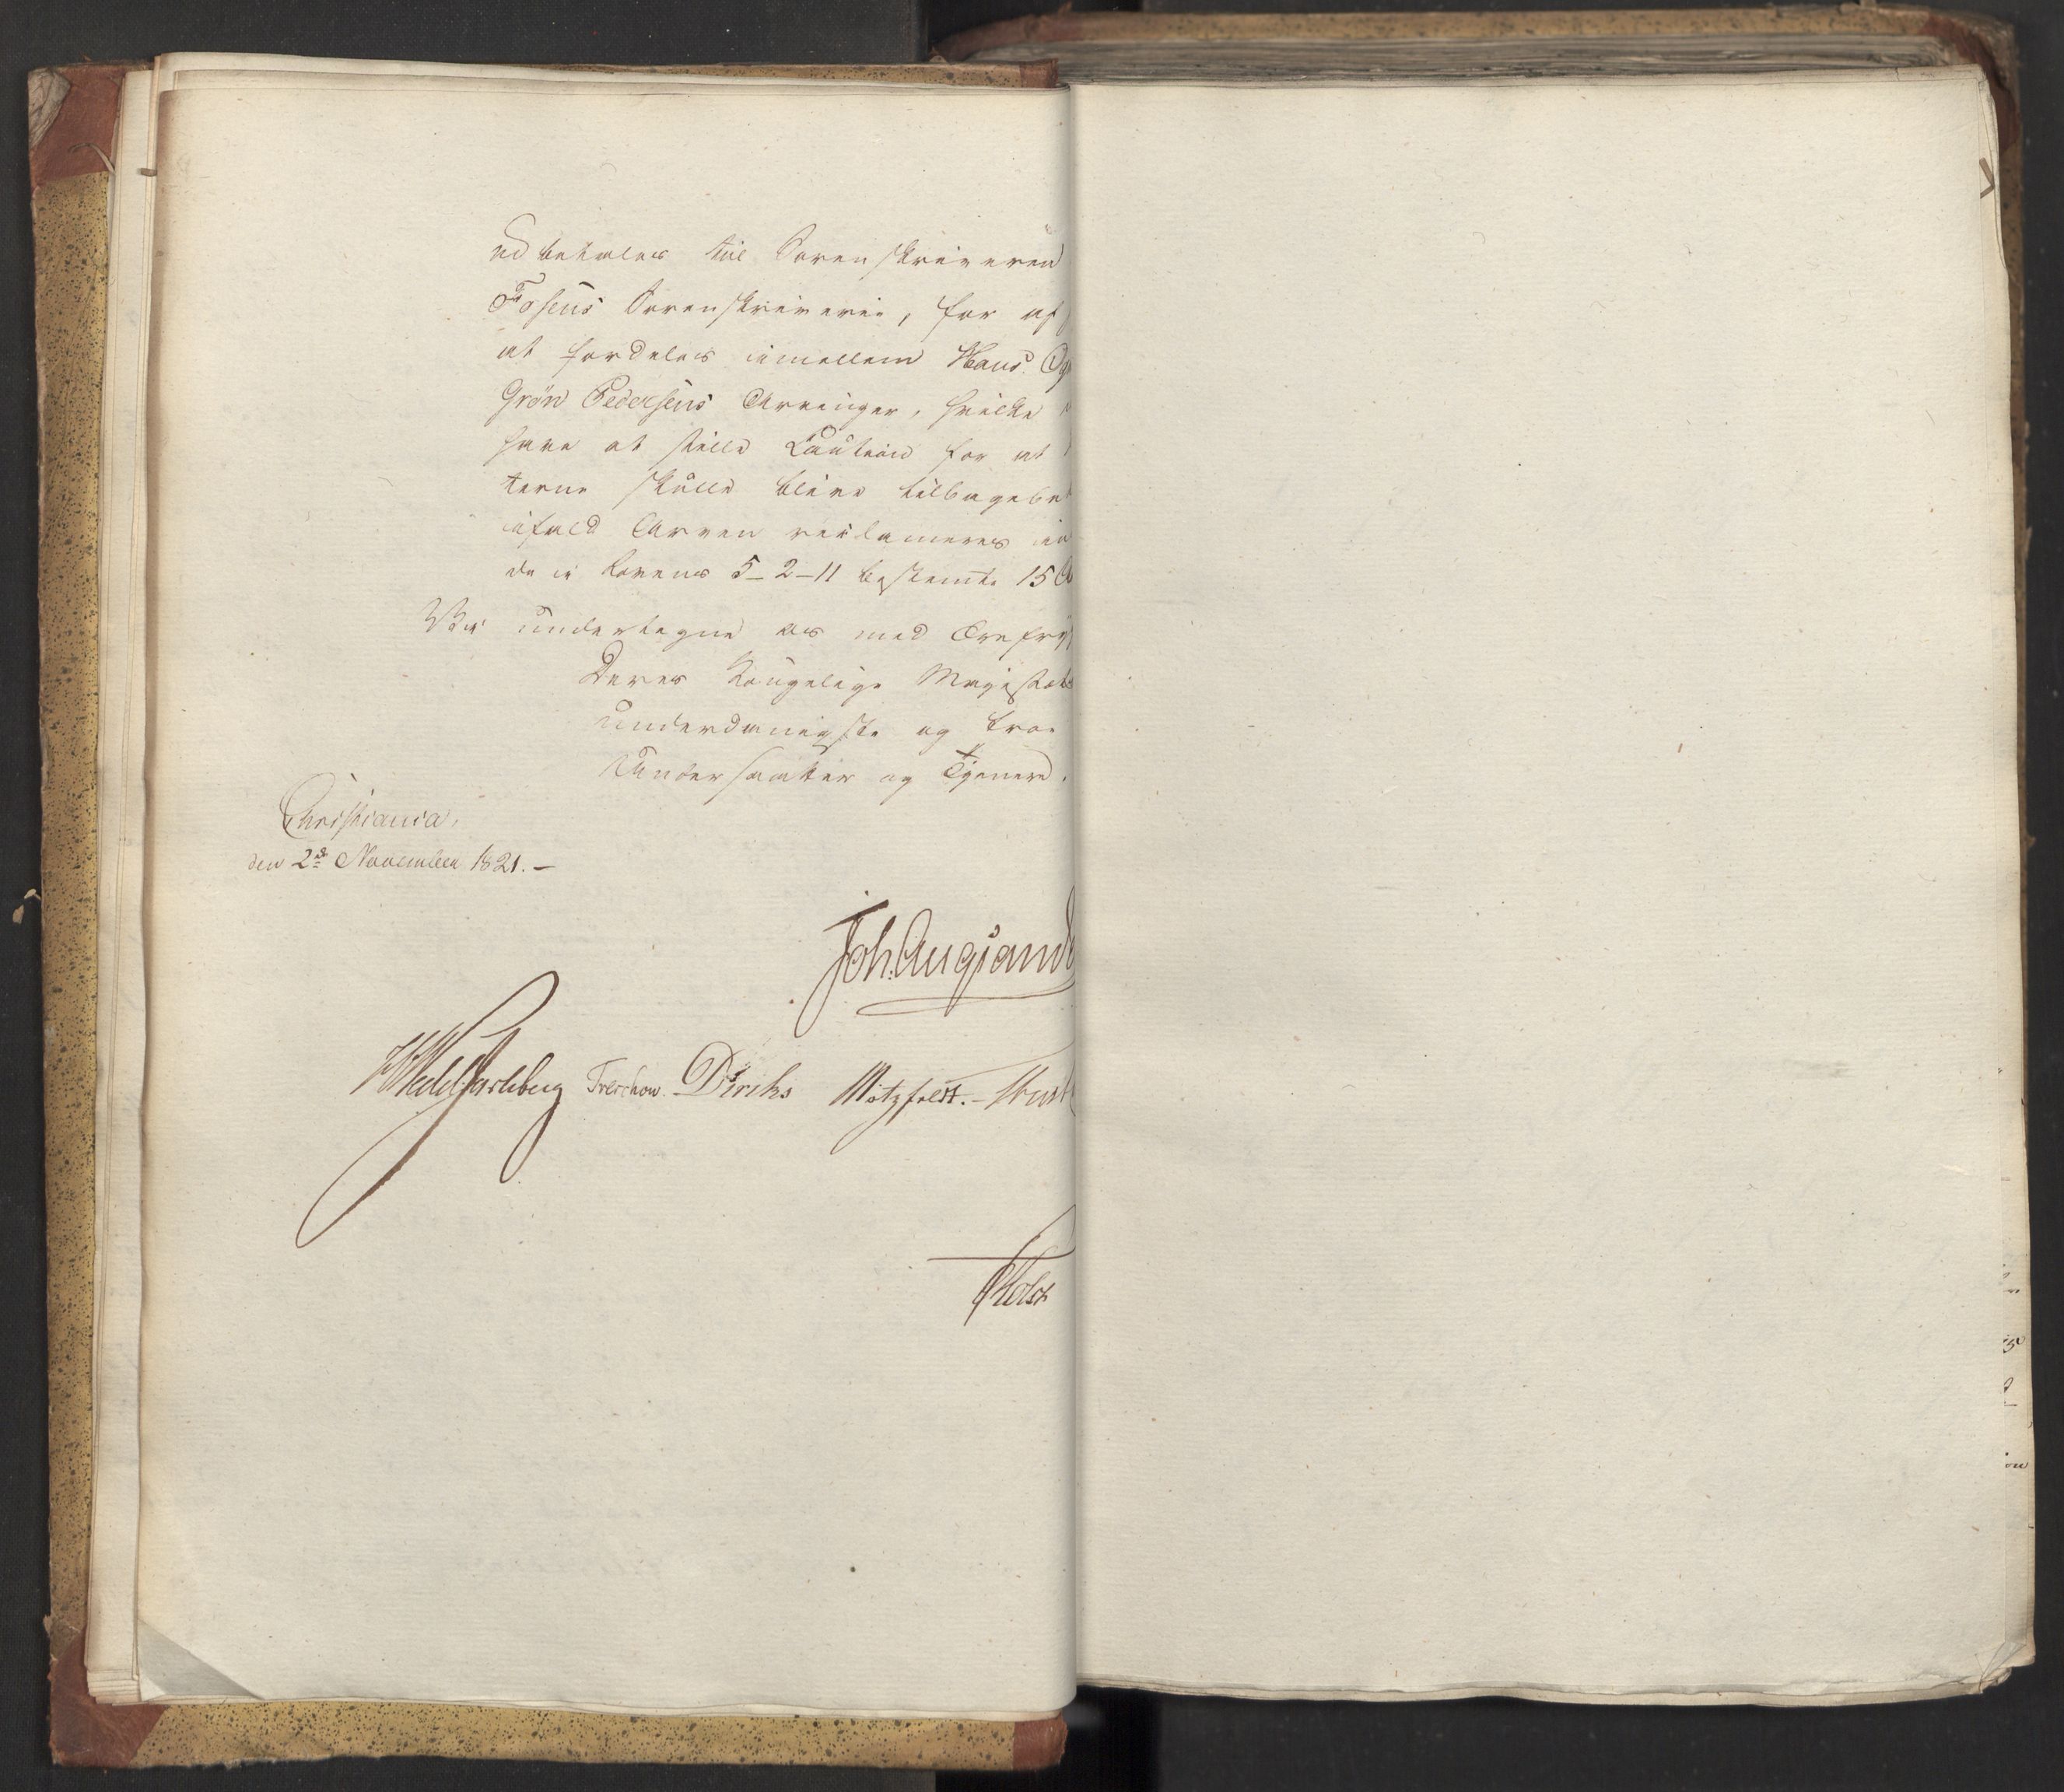 udbetales til Sorenskriveren
Fosens Sorenskriverie, for af
at fordeles imellem Hans
Grøn Pedersens Arvinger, hvilke
have at stille Caution for at
terne skulle blive tilbagebet
ifald Arven reclameres in
de i Lovens 5-2-11 bestemte 15
Vi undertegne os med Ærefry
Deres Kongelige Majestæts
underdanigste og troe
Undersaatter og Tjenere.
Christiania,
den 2den November 1821.-
Joh: Aug Sand
HWedelJarlsberg Treschow. Diriks Motzfeldt.-
Holst